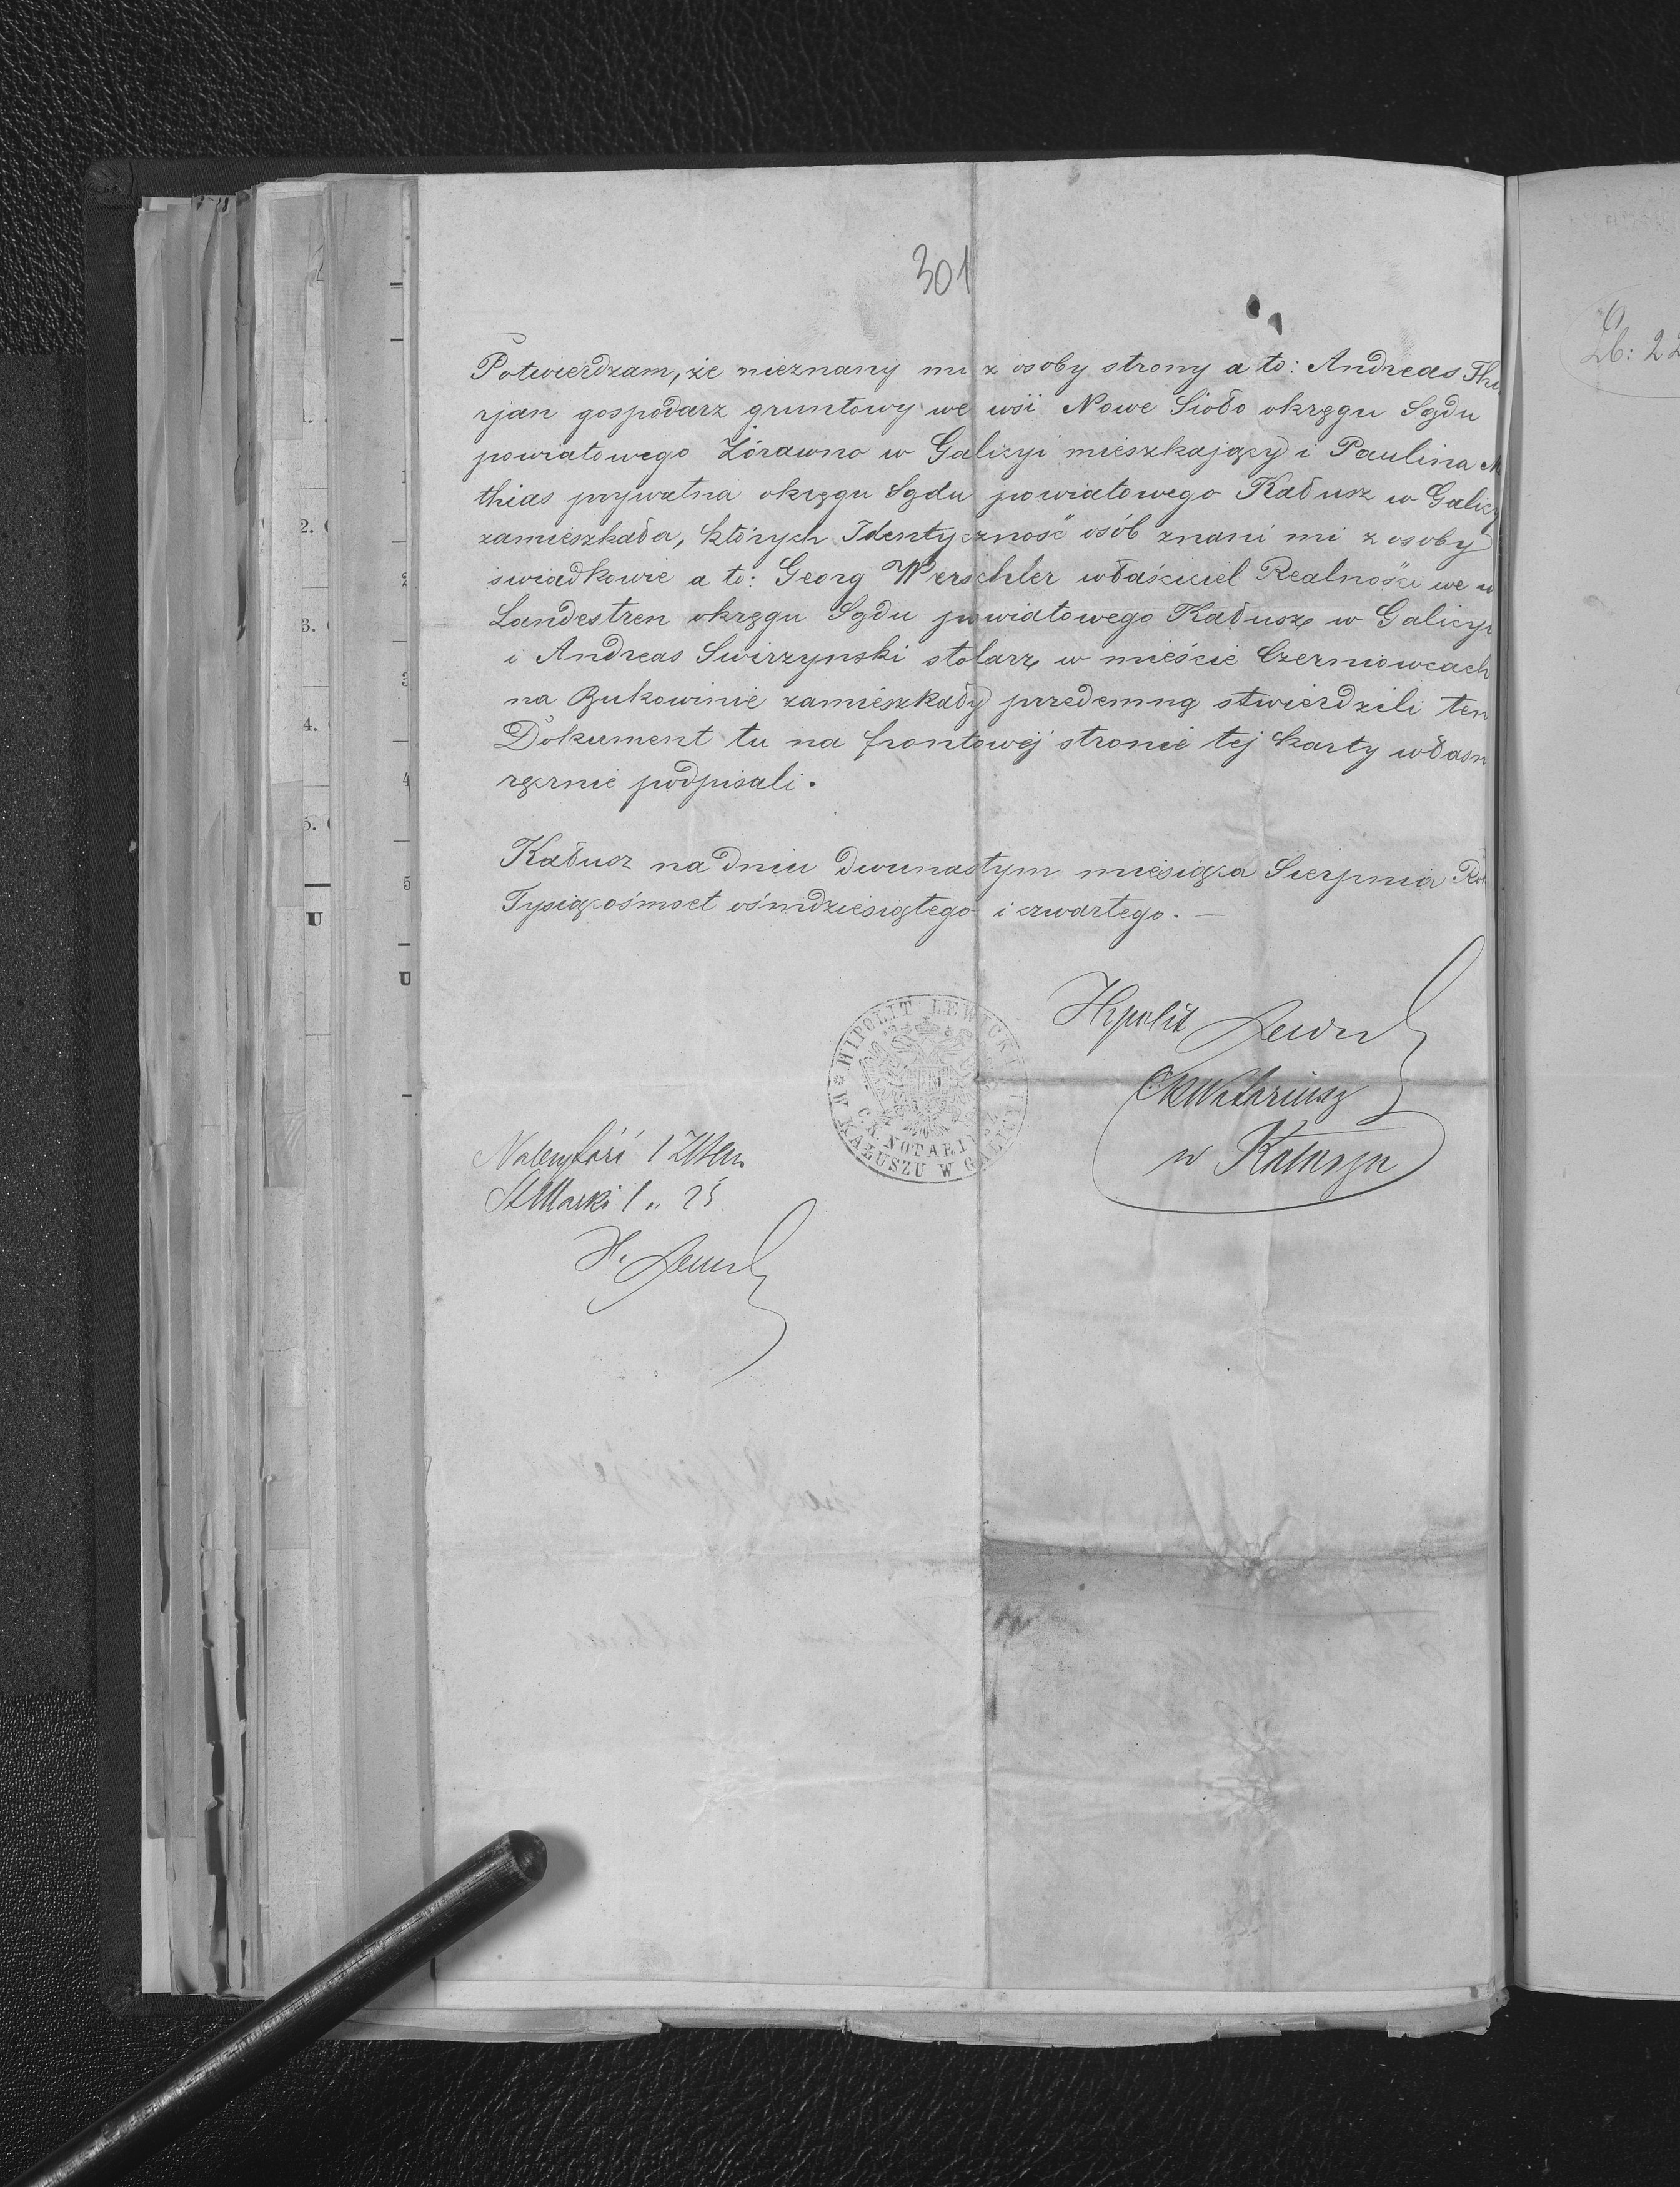 301
Potwierdzam, że nieznany mi z osoby strony a to: Andreas
rjan gospodarz gruntowy we wsi Nowe Sioło okręgu Sądu
powiatowego Żórawno w Galicyi mieszkający i Paulina M
thias prywatna okręgu Sądu powiatowego Kałusz w Galicy
zamieszkała, których Identyczność osób znani mi z osoby
swiadkowie a to: Georg Werschler właściciel Realności we w
Landestreu okręgu Sądu powiatowego Kałusz w Galicyi
i Andreas Swirzynski stolarz w mieście Czerniowcach
na Bukowinie zamieszkały przedemną stwierdzili ten
Dokument tu na frontowéj stronie tej karty własn
ręcznie podpisali.
Kałusz na dniu dwunastym miesiąca Sierpnia Ro
Tysiącośmset ośmdziesiątego i czwartego. —
Hipolit Lewicki
CKNotariusz
w Kałuszu
HIPOLIT LEWICKI
C.K. NOTARIUSZ
W KAŁUSZU W GALICYI
Należytość 1
StMarki 1 „ 25
H. Lewicki
1.
2.
3.
4.
5.
U
1
2
3
4
5
U
Lb: 22